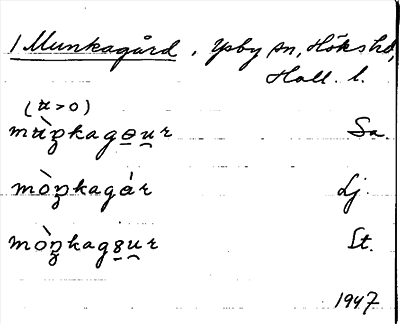 1 Munkagård, Ysby sn, Höks hd,
Hall. l.
(u > o)
mùŋkagɵu̯r Sa.
mòŋkagår Lj.
mòŋkag8u̯r St.
1947